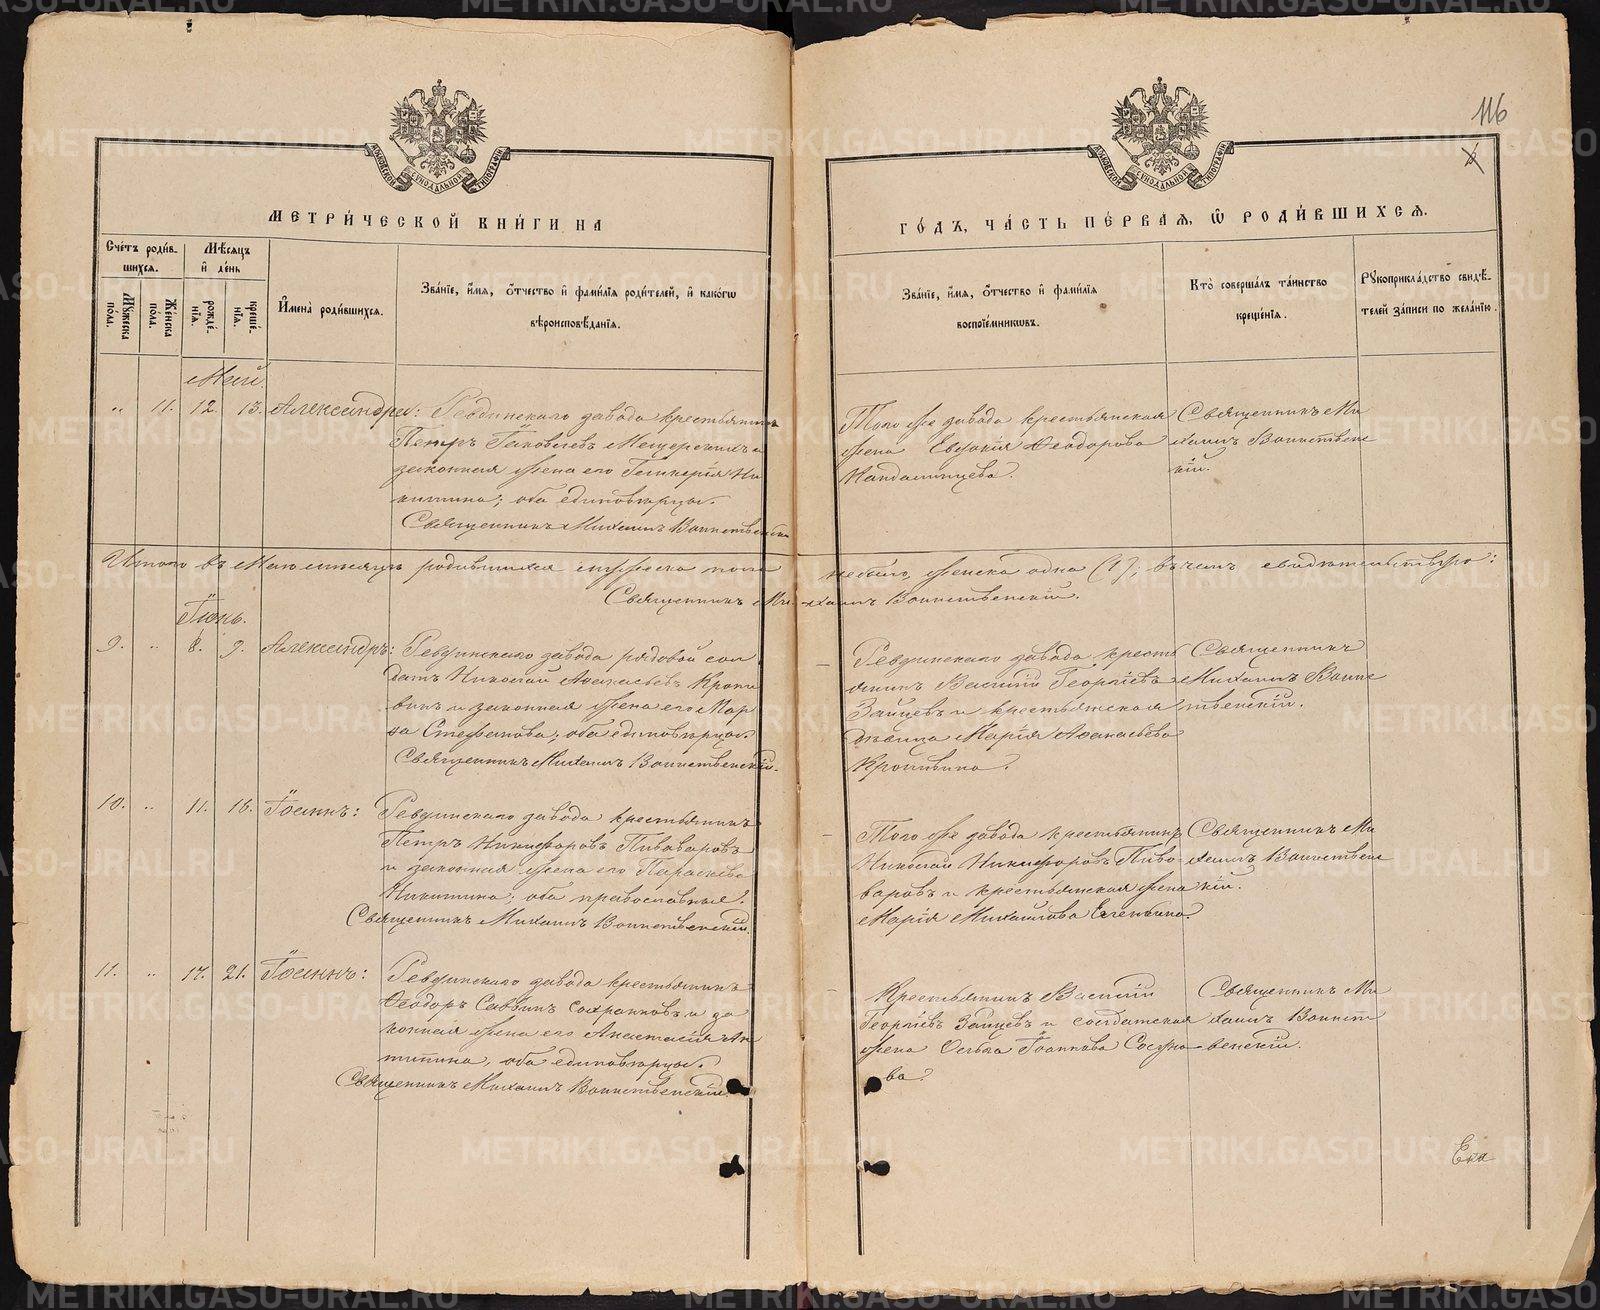 116
МОСКОВСКОЙ СѴНОДАЛЬНОЙ ТИПОГРАФІИ
МОСКОВСКОЙ СѴНОДАЛЬНОЙ ТИПОГРАФІИ
МЕТРИ́ЧЕСКОЙ КНИ́ГИ НА
ГО́ДЪ, ЧА́СТЬ ПЕ́РВАЯ, Ѽ РОДИ́ВШИХСЯ.
Сче́тъ роди́вшихся.
Му́жеска по́ла.
Же́нска по́ла.
Мѣ́сяцъ и҆ де́нь
рожде́нїя.
креще́нїя.
И҆мена̀ роди́вшихся.
Зва́нїе, и҆́мя, ѻ҆́тчество и҆ фами́лїя роди́телей, и҆ како́гѡ
вѣроисповѣ́данїя.
Зва́нїе, и҆́мя, ѻ҆́тчество и҆ фами́лїя
воспрїе́мникѡвъ.
Кто̀ соверша́лъ та́инство
креще́нїя.
Рꙋкоприкла́дство свидѣ́-
телей за́писи по жела́нїю.
Май.
" 11. 12. 13. Александра: Ревдинскаго завода крестьянинъ
Петръ Іаковлевъ Мещерскихъ и
законная жена его Гликерія Ни
китина; оба единовѣрцы.
Священникъ Михаилъ Воинственскій
Того же завода крестьянская
жена Евдокія Ѳеодорова
Священникъ Ми
хаилъ Воинствен
скій.
Итого въ Маѣ мѣсяцѣ родившихся мужеска пола небыло, женска одна (1); въ чемъ свидѣтельствую:
Священникъ Михаилъ Воинственскій.
Іюнь.
9. " 8. 9. Александръ: Ревдинскаго завода рядовой сол
датъ Николай Аѳанасьевъ Кропи
винъ и законная жена его Мар
ѳа Стефанова; оба единовѣрцы.
Священникъ Михаилъ Воинственскій.
Ревдинскаго завода кресть
янинъ Василій Георгіевъ
Зайцевъ и крестьянская
дѣвица Марія Аѳанасьева
Кропивина.
Священникъ
Михаилъ Воинс
твенскій.
10. " 11. 16. Іоаннъ: Ревдинскаго завода крестьянинъ
Петръ Никифоровъ Пивоваровъ
и законная жена его Параскева
Никитина; оба православные.
Священникъ Михаилъ Воинственскій.
Того же завода крестьянинъ
Николай Никифоровъ Пиво-
варовъ и крестьянская жена
Марія Михаилова
Священникъ Ми
хаилъ Воинствен
скій.
11. " 17. 21. Іоаннъ: Ревдинскаго завода крестьянинъ
Ѳеодоръ Саввинъ и за
конная жена его Анастасія Ан
типина, оба единовѣрцы.
Священникъ Михаилъ Воинственскій.
Крестьянинъ Василій
Георгіевъ Зайцевъ и солдатская
жена Іоаннова
Священникъ Ми
хаилъ Воинст
венскій.
Ека
METRIKI.GASO-URAL.RU